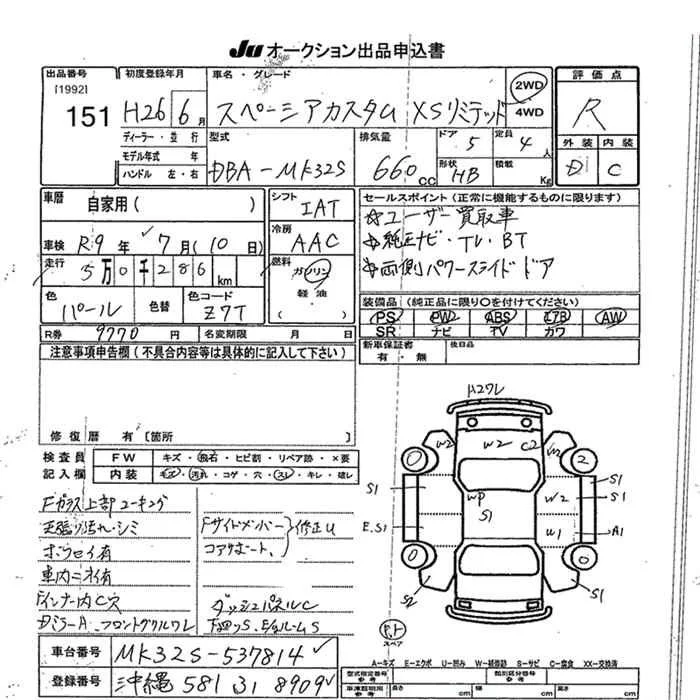 JU オークション出品申込書
出品番号
[1992]
151
初度登録年月
H26 6月
ディーラー・並行
モデル年式 年
ハンドル 左・右
車名・グレード
スペーシアカスタム XSリミテッド
2WD
4WD
型式
DBA-MK32S
排気量
660cc
ドア
5
定員
4人
形状
HB
積載
Kg
評価点
R
外装 内装
D C
車歴
自家用( )
車検 R9年 7月(10日)
走行 5万0千286km
色
パール
色替
色コード
Z7T
シフト
IAT
冷房
AAC
燃料
ガソリン
軽油
( )
セールスポイント(正常に機能するものに限ります)
☆ユーザー買取車
☆純正ナビ・TV・BT
☆両側パワースライドドア
装備品(純正品に限り○を付けてください)
PS PW ABS エアB AW
SR ナビ TV カワ
R券 9770円 名変期限 月 日
新車保証書
有・無
後日品
注意事項申告欄(不具合内容等は具体的に記入して下さい)
修復歴 有 〔箇所
検査員
記入欄
FW キズ・飛石・ヒビ割・リペア跡・×要
内装 キズ・汚れ・コゲ・穴・スレ・キレ・破レ
Fガラス上部コーキング
天張り汚れ・シミ
ボウセイ有
車内ニオイ有
Fインナー内C穴
Dミラーム フロントグリルワレ
Fサイドメンバー
コアサポート、
修正U
ダッシュパネルC
下回りS・E/gルームS
ハガレ
W2
W2
C2
W2
2
S1
WP
S1
W2
S1
E.S1
W1
A1
S2
S1
スペア
車台番号 MK32S-537814
登録番号 沖縄 581 3I 8909
A-キズ E-エクボ U-凹み W-補修跡 S-サビ C-腐食 XX-交換済
型式指定番号
参考
類別区分番号
参考
車庫証明用
参考
長さ cm 幅 cm 高さ cm